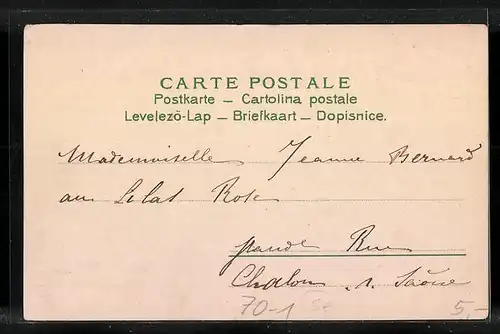 CARTE POSTALE
Postkarte – Cartolina postale
Levelező-Lap – Briefkaart – Dopisnice.
Mademoiselle Jeanne Bernard
au Lilas Rose
grande Rue
Chalon s. Saône
70-1
5,-